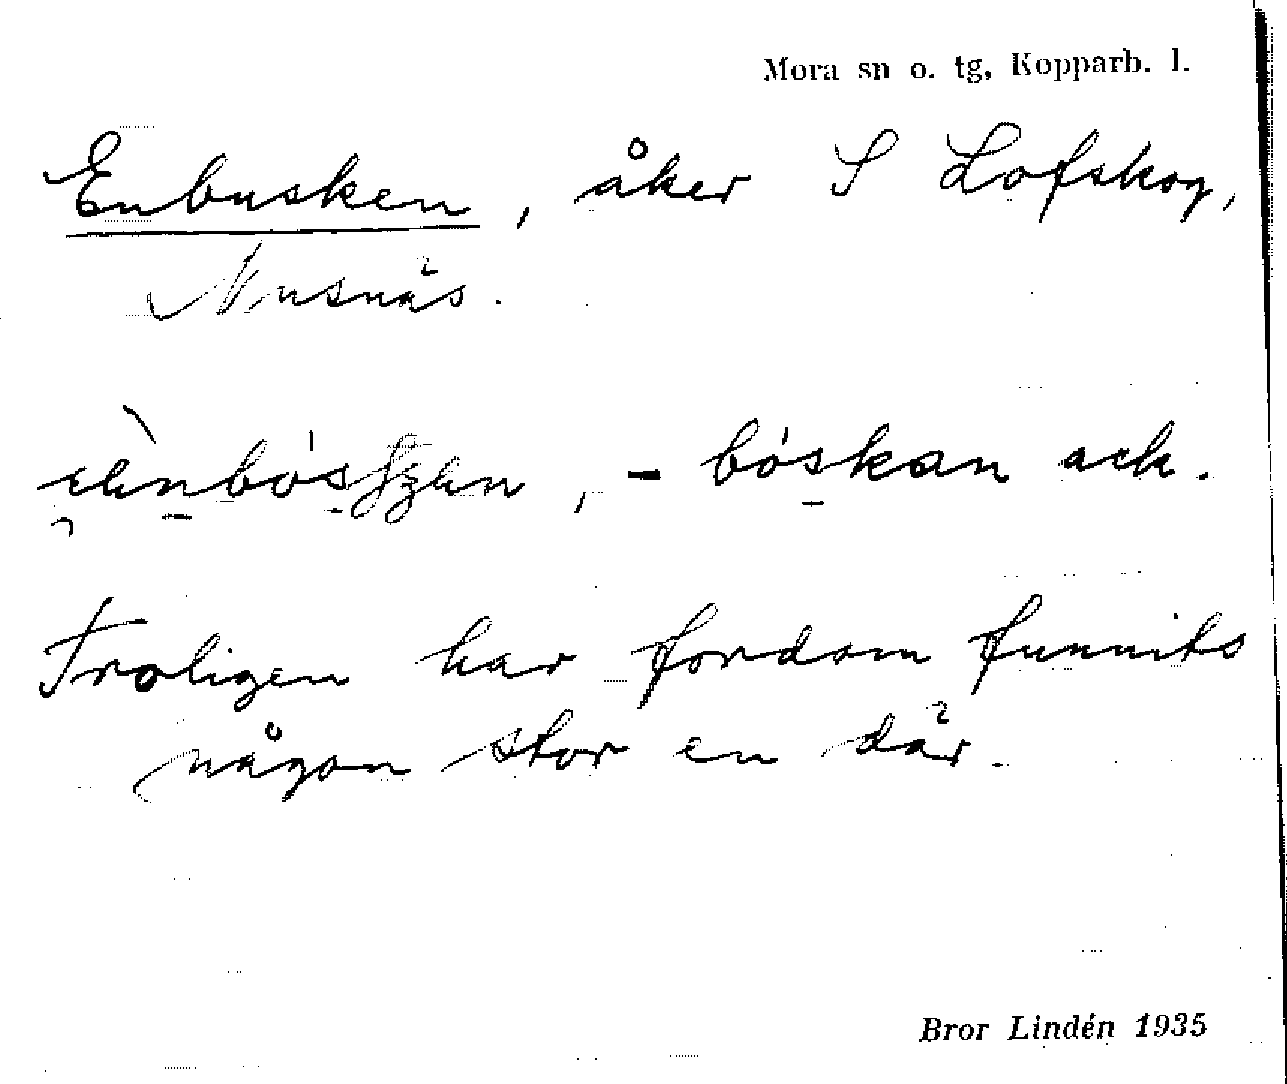 Mora sn o. tg, Kopparb. l.
Enbusken, åker S Lofskog,
Nusnäs.
-bóskan ack.
Troligen har fordom funnits
någon stor en där.
Bror Lindén 1935